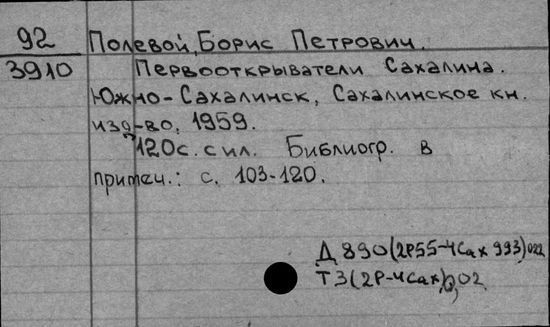 92 Полевой, Борис Петрович.
3910 Первооткрыватели Сахалина.
Южно-Сахалинск, Сахалинское кн.
изд-во, 1959.
120с. с ил. Библиогр. в
примеч.: с. 103-120.
Д 890(2Р55-4Сах993)022
Т3(2Р-4Сах),02